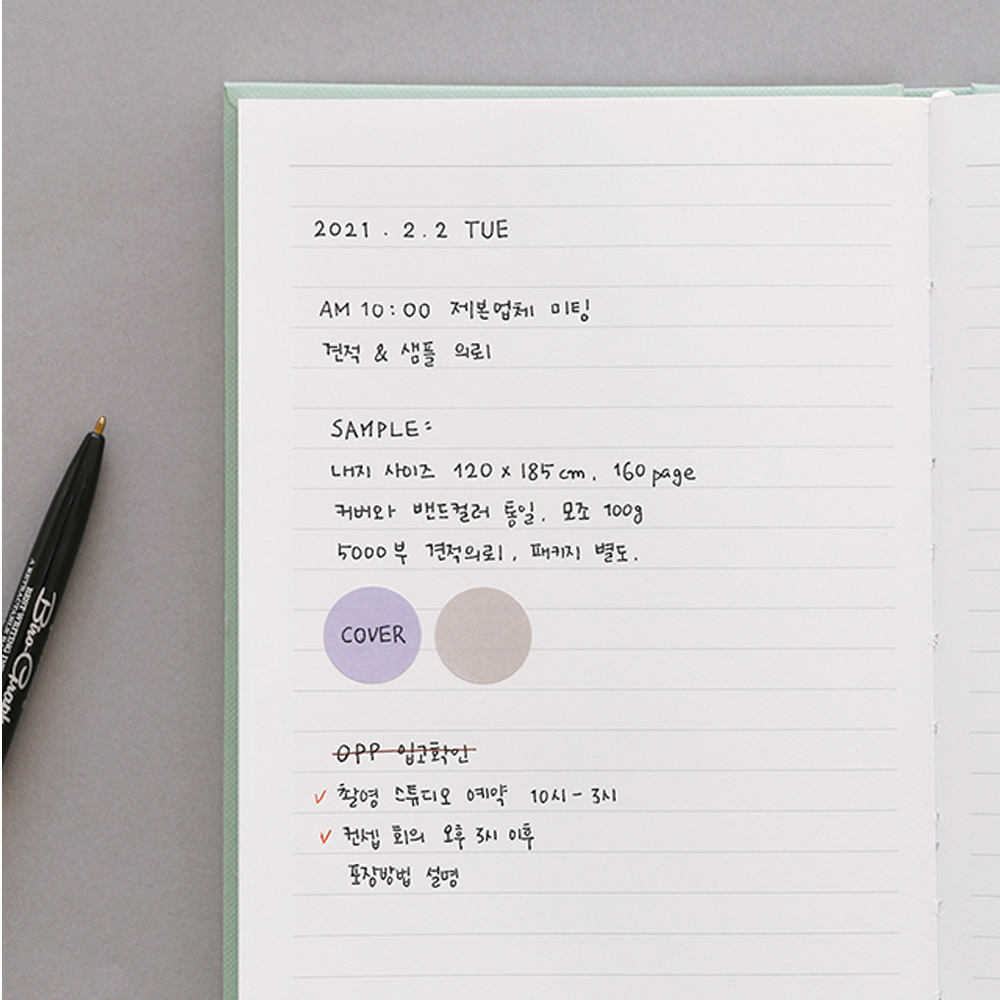 2021 . 2 . 2 TUE
AM 10:00 제본업체 미팅
견적 & 샘플 의뢰
SAMPLE:
내지 사이즈 120 x 185 cm. 160 page
커버와 밴드컬러 통일. 모조 100g
5000부 견적의뢰, 패키지 별도.
COVER
OPP 입고확인
✓ 촬영 스튜디오 예약 10시 - 3시
✓ 컨셉 회의 오후 3시 이후
포장방법 설명
BEST WRITING